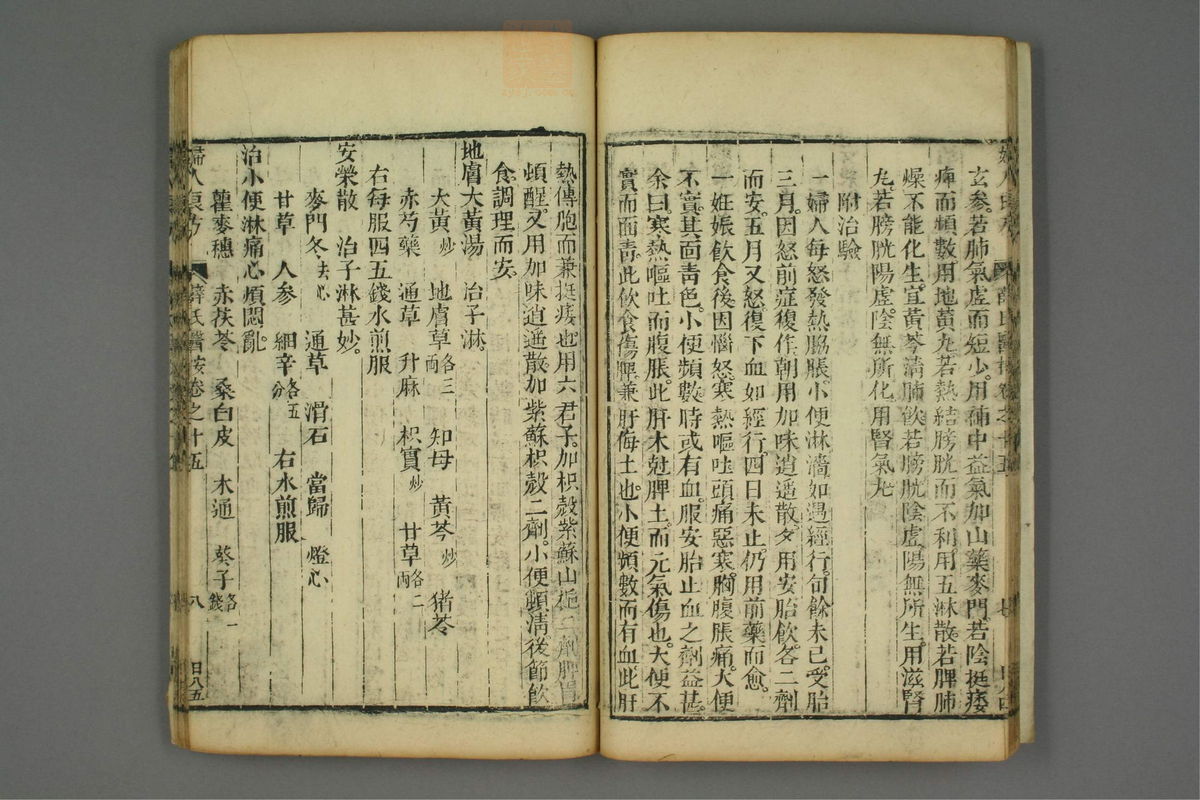 玄參若肺氣虛而短少用補中益氣加山藥麥門若陰挺痿
痺而頻數用地黃丸若熱結膀胱而不利用五淋散若脾肺
燥不能化生宜黃芩清肺飲若膀胱陰虛陽無所生用滋腎
丸若膀胱陽虛陰無所化用腎氣丸
附治驗
一婦人每怒發熱脇脹小便淋濇如遇經行旬餘未已受胎
三月因怒前症復作朝用加味逍遥散夕用安胎飲各二劑
而安五月又怒復下血如經行四日未止仍用前藥而愈
一妊娠飲食後因惱怒寒熱嘔吐頭痛惡寒胸腹脹痛大便
不實其面青色小便頻數時或有血服安胎止血之劑益甚
余曰寒熱嘔吐而腹脹此肝木尅脾土而元氣傷也大便不
實而面青此飲食傷脾兼肝侮土也小便頻數而有血此肝
熱傳胞而兼挺痿也用六君子加枳殼紫蘇山梔二劑脾胃
頓醒又用加味逍遥散加紫蘇枳殼二劑小便頓清後節飲
食調理而安
地膚大黃湯 治子淋
大黃炒 地膚草各三兩 知母 黃芩炒 猪苓
赤芍藥 通草 升麻 枳實炒 甘草各二兩
右每服四五錢水煎服
安榮散 治子淋甚妙
麥門冬去心 通草 滑石 當歸 燈心
甘草 人參 細辛各五分 右水煎服
治小便淋痛心煩悶亂
瞿麥穗 赤茯苓 桑白皮 木通 葵子各一錢
婦人良方 薛氏醫按卷之十五 八 日八五